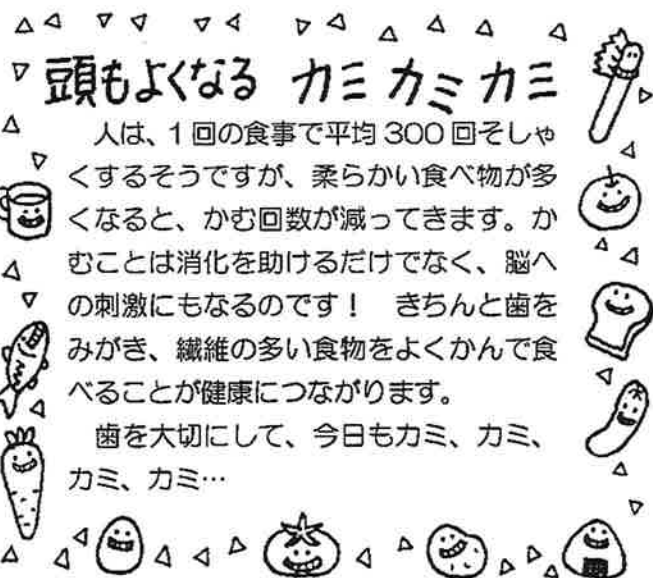 頭もよくなる カミカミカミ
　人は、1回の食事で平均300回そしゃ
くするそうですが、柔らかい食べ物が多
くなると、かむ回数が減ってきます。か
むことは消化を助けるだけでなく、脳へ
の刺激にもなるのです！　きちんと歯を
みがき、繊維の多い食物をよくかんで食
べることが健康につながります。
　歯を大切にして、今日もカミ、カミ、
カミ、カミ…